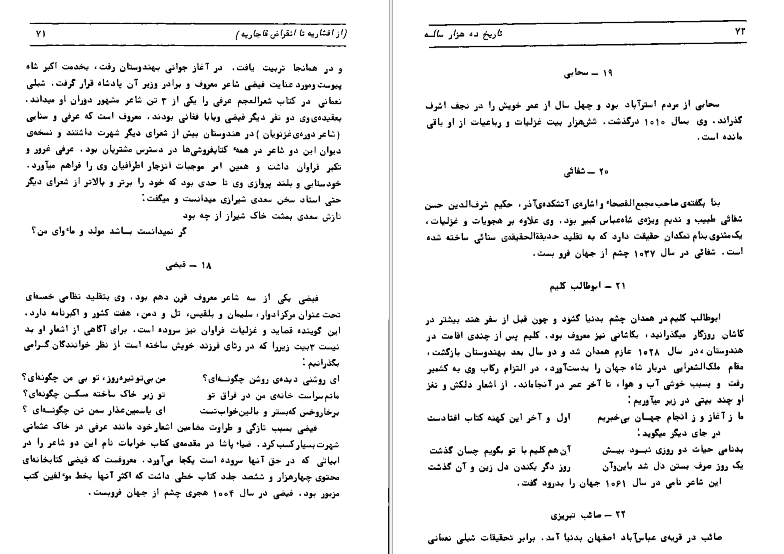 (از افشاریه تا انقراض قاجاریه) ۷۱
و در همانجا تربیت یافت. در آغاز جوانی بهندوستان رفت، بخدمت اکبر شاه
پیوست ومورد عنایت فیضی شاعر معروف و برادر وزیر آن پادشاه قرار گرفت. شبلی
نعمانی در کتاب شعرالعجم عرفی را یکی از ۳ تن شاعر مشهور دوران او میداند.
بعقیده‌ی وی دو نفر دیگر فیضی وبابا فغانی بودند. معروف است که عرفی و سنایی
(شاعر دوره‌ی غزنویان) در هندوستان بیش از شعرای دیگر شهرت داشتند و نسخه‌ی
دیوان این دو شاعر در همهٔ کتابفروشی‌ها در دسترس مشتریان بود. عرفی غرور و
تکبر فراوان داشت و همین امر موجبات انزجار اطرافیان وی را فراهم میآورد.
خودستایی و بلند پروازی وی تا حدی بود که خود را برتر و بالاتر از شعرای دیگر
حتی استاد سخن سعدی شیرازی میدانست و میگفت:
نازش سعدی بمشت خاک شیراز از چه بود
گر نمیدانست بساشد مولد و ماٴوای من؟
۱۸ – فیضی
فیضی یکی از سه شاعر معروف قرن دهم بود. وی بتقلید نظامی خمسه‌ای
تحت عنوان مرکز ادوار، سلیمان و بلقیس، نل و دمن، هفت کشور و اکبرنامه دارد.
این گوینده قصاید و غزلیات فراوان نیز سروده است. برای آگاهی از اشعار او بد
نیست ۳ بیت زیررا که در رثای فرزند خویش ساخته است از نظر خوانندگان گرامی
بگذرانیم:
ای روشنی دیده‌ی روشن چگونه‌ای؟ من بی‌تو تیره‌روز، تو بی من چگونه‌ای؟
ماتم‌سراست خانه‌ی من در فراق تو تو زیر خاک ساخته مسکن چگونه‌ای؟
برخار‌وخس که‌بستر و بالین‌خواب‌تست ای یاسمین‌عذار سمن تن چگونه‌ای ؟
فیضی بسبب تازگی و طراوت مضامین اشعار خود مانند عرفی در خاک عثمانی
شهرت بسیار کسب کرد. ضیاٴ پاشا در مقدمه‌ی کتاب خرابات نام این دو شاعر را در
ابیاتی که در حق آنها سروده است یکجا می‌آورد. معروفست که فیضی کتابخانه‌ای
محتوی چهارهزار و ششصد جلد کتاب خطی داشت که اکثر آنها بخط موٴلفین کتب
مزبور بود. فیضی در سال ۱۰۰۴ هجری چشم از جهان فروبست.
۷۲ تاریخ ده هزار ساله
۱۹ – سحابی
سحابی از مردم استرآباد بود و چهل سال از عمر خویش را در نجف اشرف
گذراند. وی بسال ۱۰۱۰ درگذشت. شش‌هزار بیت غزلیات و رباعیات از او باقی
مانده است.
۲۰ – شفائی
بنا بگفته‌ی صاحب مجمع‌الفصحاٴ و اشاره‌ی آتشکده‌ی آذر، حکیم شرف‌الدین حسن
شفائی طبیب و ندیم ویژه‌ی شاه‌عباس کبیر بود. وی علاوه بر هجویات و غزلیات،
یک مثنوی بنام نمکدان حقیقت دارد که به تقلید حدیقة‌الحقیقه‌ی سنائی ساخته شده
است. شفائی در سال ۱۰۳۷ چشم از جهان فرو بست.
۲۱ – ابوطالب کلیم
ابوطالب کلیم در همدان چشم بدنیا گشود و چون قبل از سفر هند بیشتر در
کاشان روزگار میگذرانید، بکاشانی نیز معروف بود. کلیم پس از چندی اقامت در
هندوستان، در سال ۱۰۲۸ عازم همدان شد و دو سال بعد بهندوستان بازگشت،
مقام ملک‌الشعرایی دربار شاه جهان را بدست‌آورد، در التزام رکاب وی به کشمیر
رفت و بسبب خوشی آب و هوا، تا آخر عمر در آنجاماند. از اشعار دلکش و نغز
او چند بیتی در زیر میآوریم:
ما ز آغاز و ز انجام جهــان بی‌خبریم اول و آخر این کهنه کتاب افتادست
در جای دیگر میگوید:
بدنامی حیات دو روزی نبــود بیــش آن‌هم کلیم با تو بگویم چسان گذشت
یک روز صرف بستن دل شد باین‌وآن روز دگر بکندن دل زین و آن گذشت
این شاعر نامی در سال ۱۰۶۱ جهان را بدرود گفت.
۲۲ – صائب تبریزی
صائب در قریه‌ی عباس‌آباد اصفهان بدنیا آمد. برابر تحقیقات شبلی نعمانی